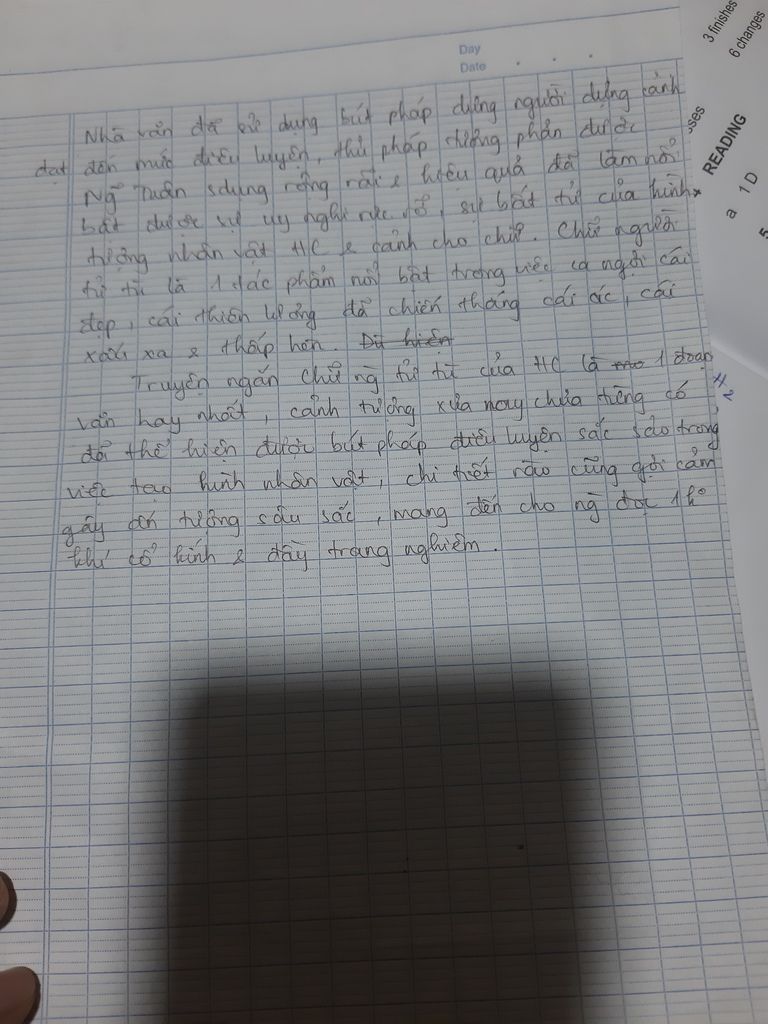 Day
Date
3 finishes
6 changes
sses
READING
a 1 D
5
Nhà văn đã sử dụng bút pháp dựng người dựng cảnh
đạt đến mức điêu luyện, thủ pháp tương phản được
Ng~ Tuân sdụng rộng rãi & hiệu quả đã làm nổi
bật được sự uy nghi rực rỡ, sự bất tử của hình
tượng nhân vật HC & cảnh cho chữ. Chữ người
tử tù là 1 tác phẩm nổi bật trong việc ca ngợi cái
đẹp, cái thiện lương đã chiến thắng cái ác, cái
xấu xa & thấp hèn. Dữ hiện
Truyện ngắn chữ ng tử tù của HC là 1 đoạn
văn hay nhất, cảnh tượng xưa nay chưa từng có
đã thể hiện được bút pháp điêu luyện sắc sảo trong
việc tạo hình nhân vật, chi tiết nào cũng gợi cảm
gây ấn tượng sâu sắc, mang đến cho ng đọc 1 ko
khí cổ kính & đầy trang nghiêm.